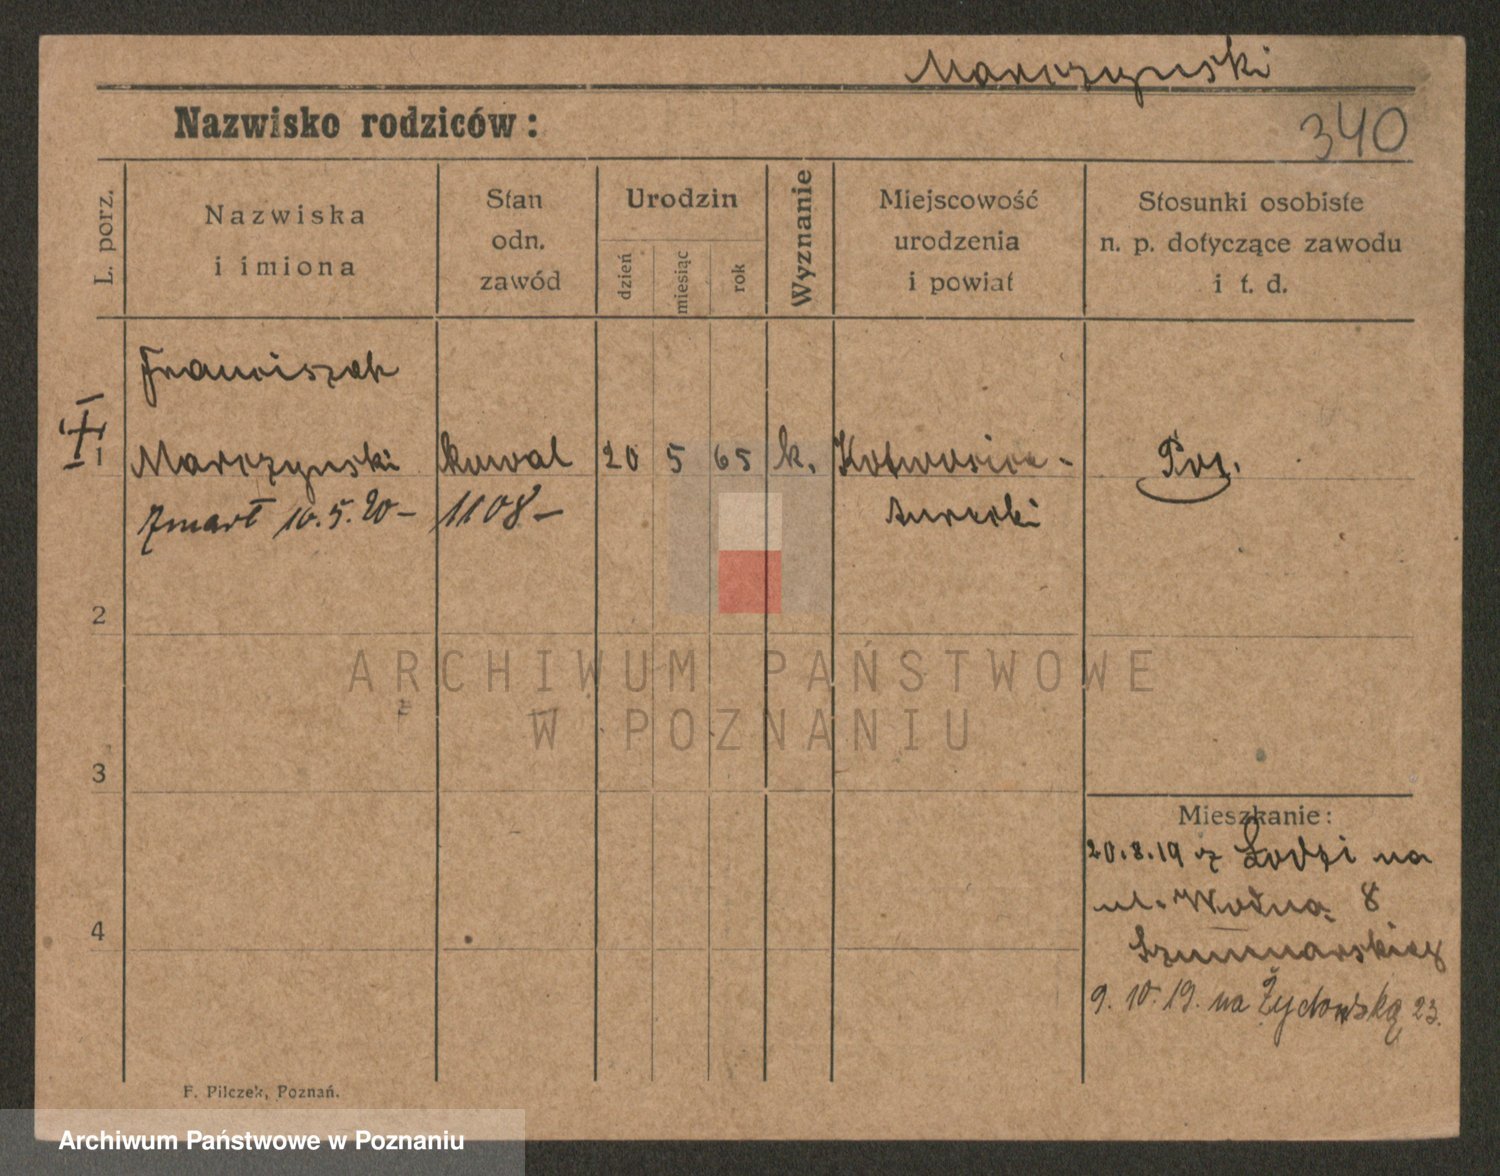 Marczynski
Nazwisko rodziców:
340
L. porz.
Nazwiska
i imiona
Stan
odn.
zawód
Urodzin
dzień
miesiąc
rok
Wyznanie
Miejscowość
urodzenia
i powiat
Stosunki osobiste
n. p. dotyczące zawodu
i t. d.
Franciszek
1 Marczynski kowal 20 5 65 k. Poz.
zmarł 10.5.20 – 1108 – turecki
2
3
4
Mieszkanie:
20.8.19 z Łodzi na
ul. Wodna 8
9.10.19. na Żydowską 23.
F. Pilczek, Poznań.
ARCHIWUM PAŃSTWOWE
W POZNANIU
Archiwum Państwowe w Poznaniu